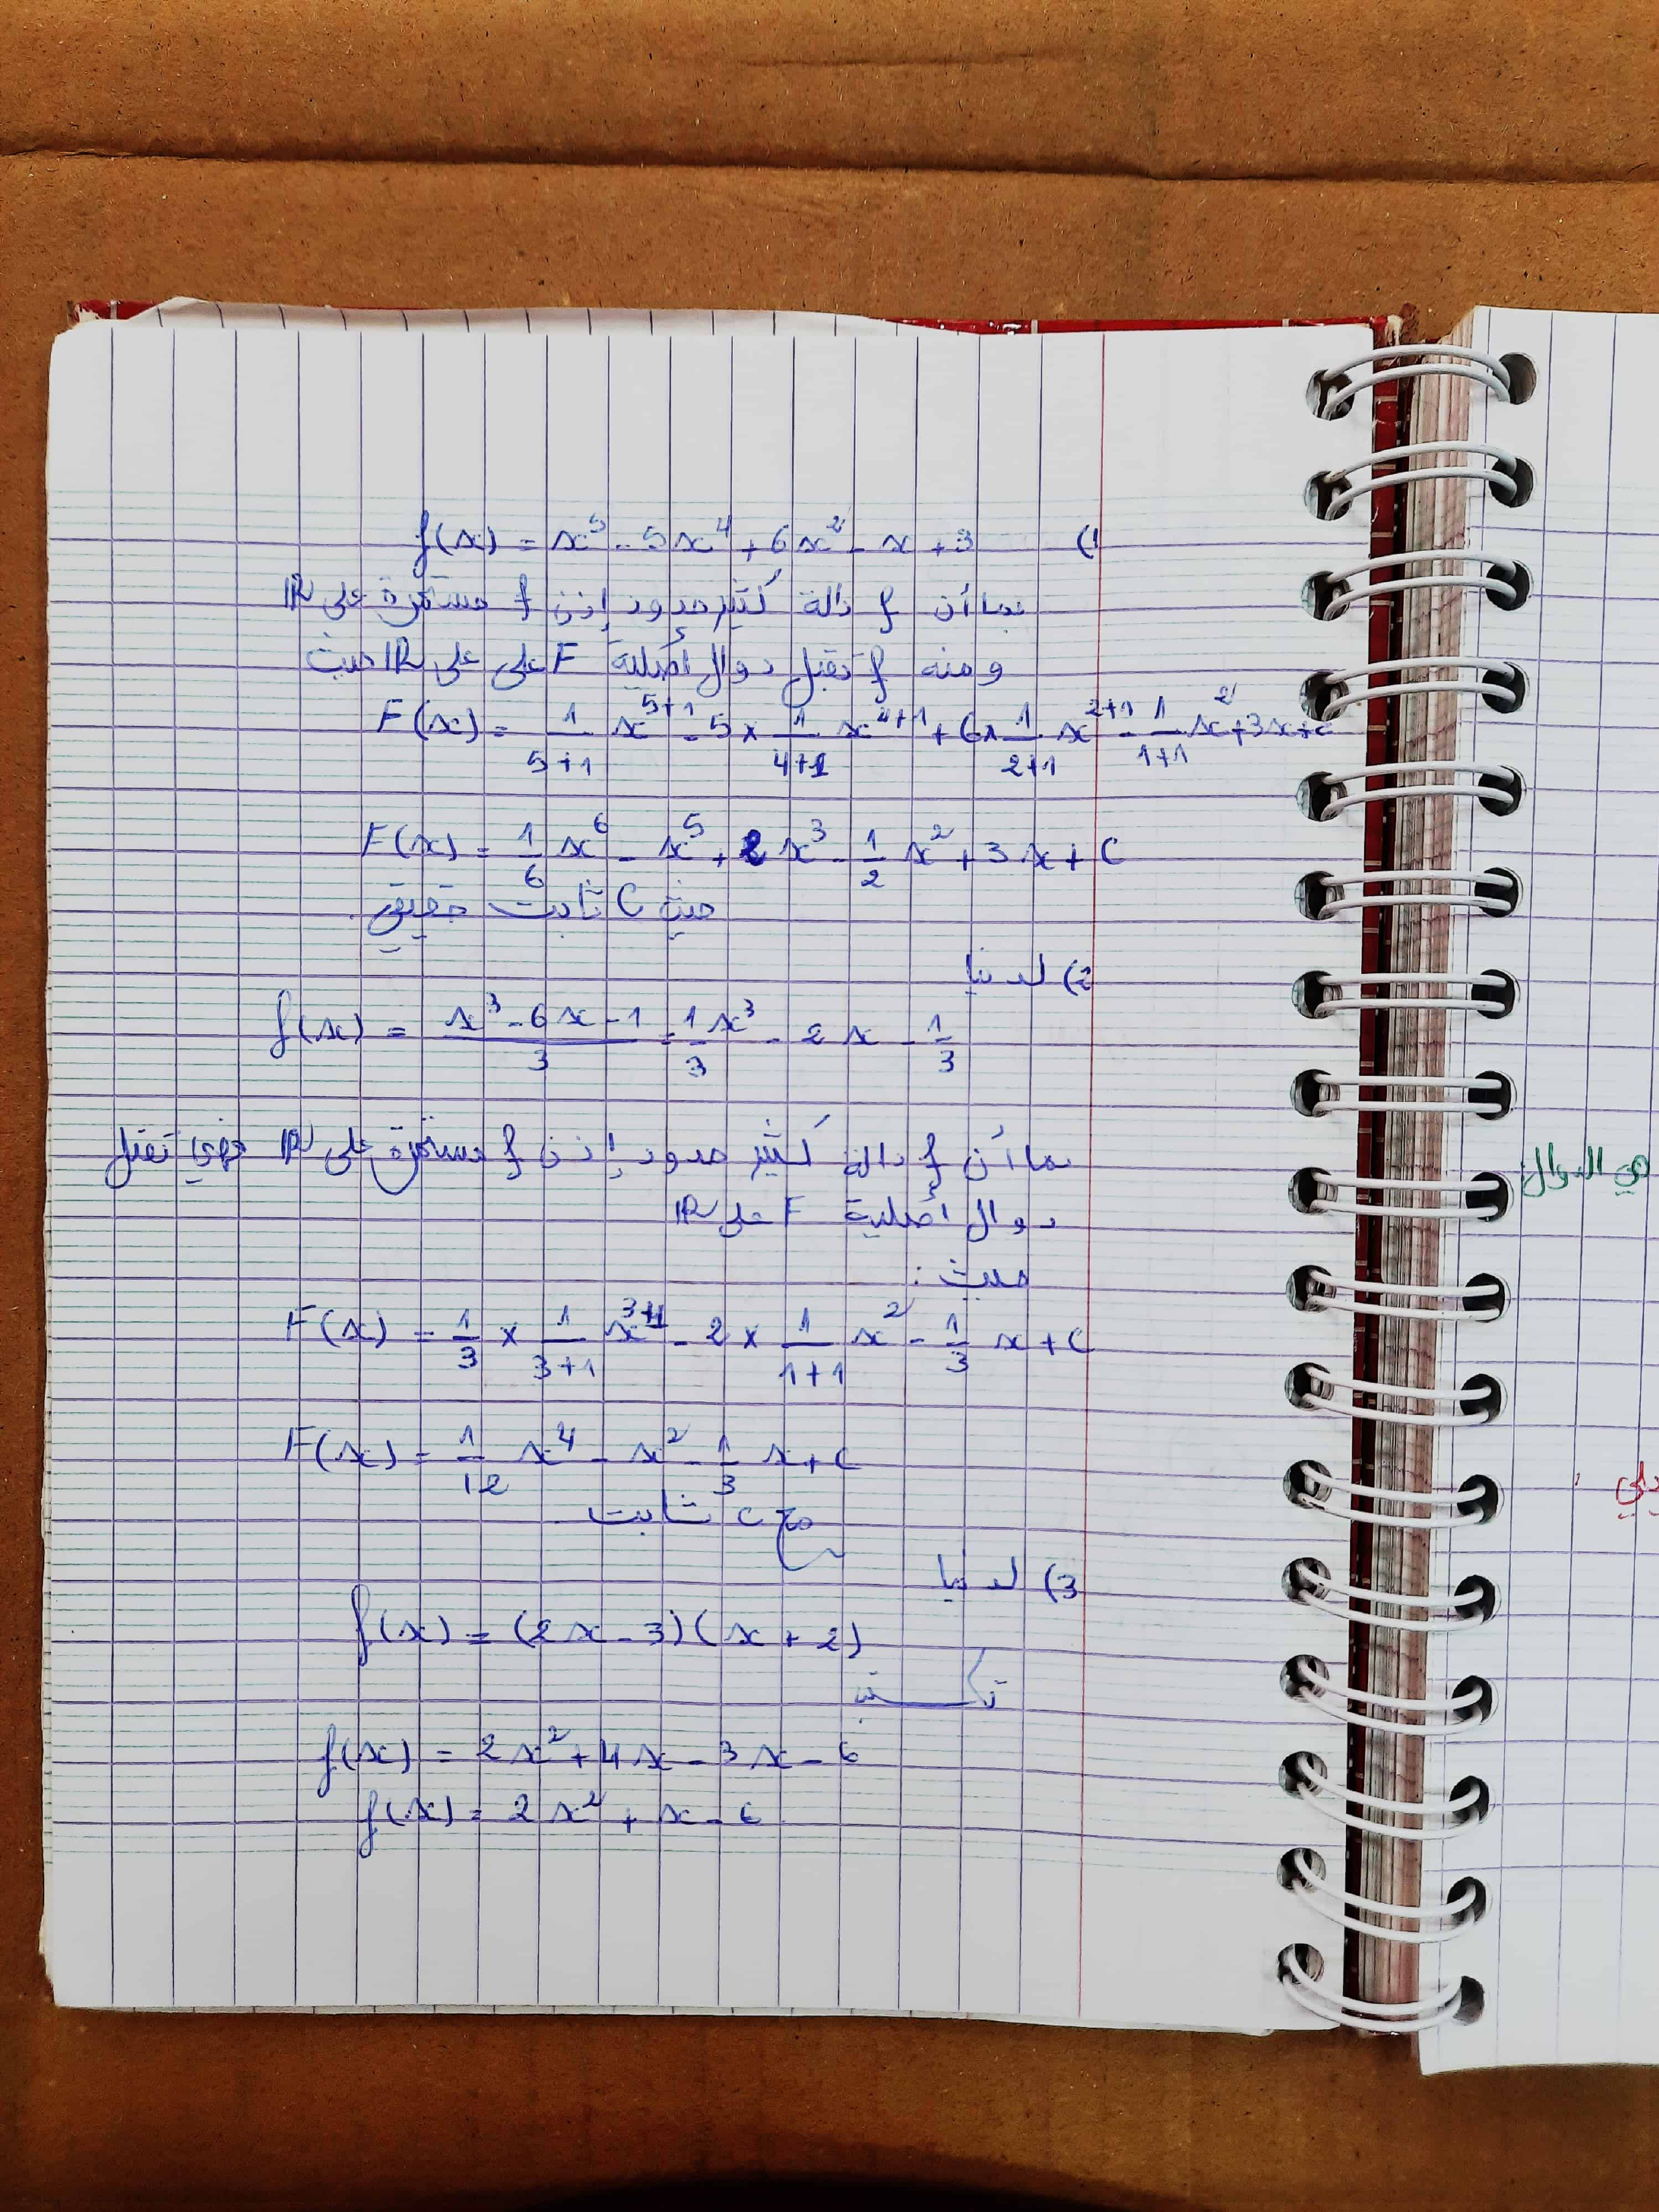 1) f(x) = x⁵ - 5x⁴ + 6x² - x + 3
بما أن f دالة كثير حدود إذن f مستمرة على IR
و منه f تقبل دوال أصلية F على على IR حيث
F(x) = 1/(5+1) x⁵⁺¹ - 5 × 1/(4+1) x⁴⁺¹ + 6 × 1/(2+1) x²⁺¹ - 1/(1+1) x² + 3x + c
F(x) = 1/6 x⁶ - x⁵ + 2x³ - 1/2 x² + 3x + C
حيث C ثابت حقيقي.
2) لدينا
f(x) = (x³ - 6x - 1)/3 = 1/3 x³ - 2x - 1/3
بما أن f دالة كثير حدود إذن f مستمرة على IR فهي تقبل
دوال أصلية F على IR
حيث :
F(x) = 1/3 × 1/(3+1) x³⁺¹ - 2 × 1/(1+1) x² - 1/3 x + C
F(x) = 1/12 x⁴ - x² - 1/3 x + C
مع c ثابت
3) لدينا
f(x) = (2x - 3)(x + 2)
f(x) = 2x² + 4x - 3x - 6
f(x) = 2x² + x - 6
هي الدوال